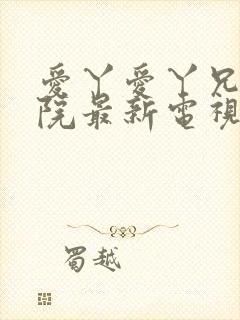 愛丫愛丫兄
院最新電視
蜀越